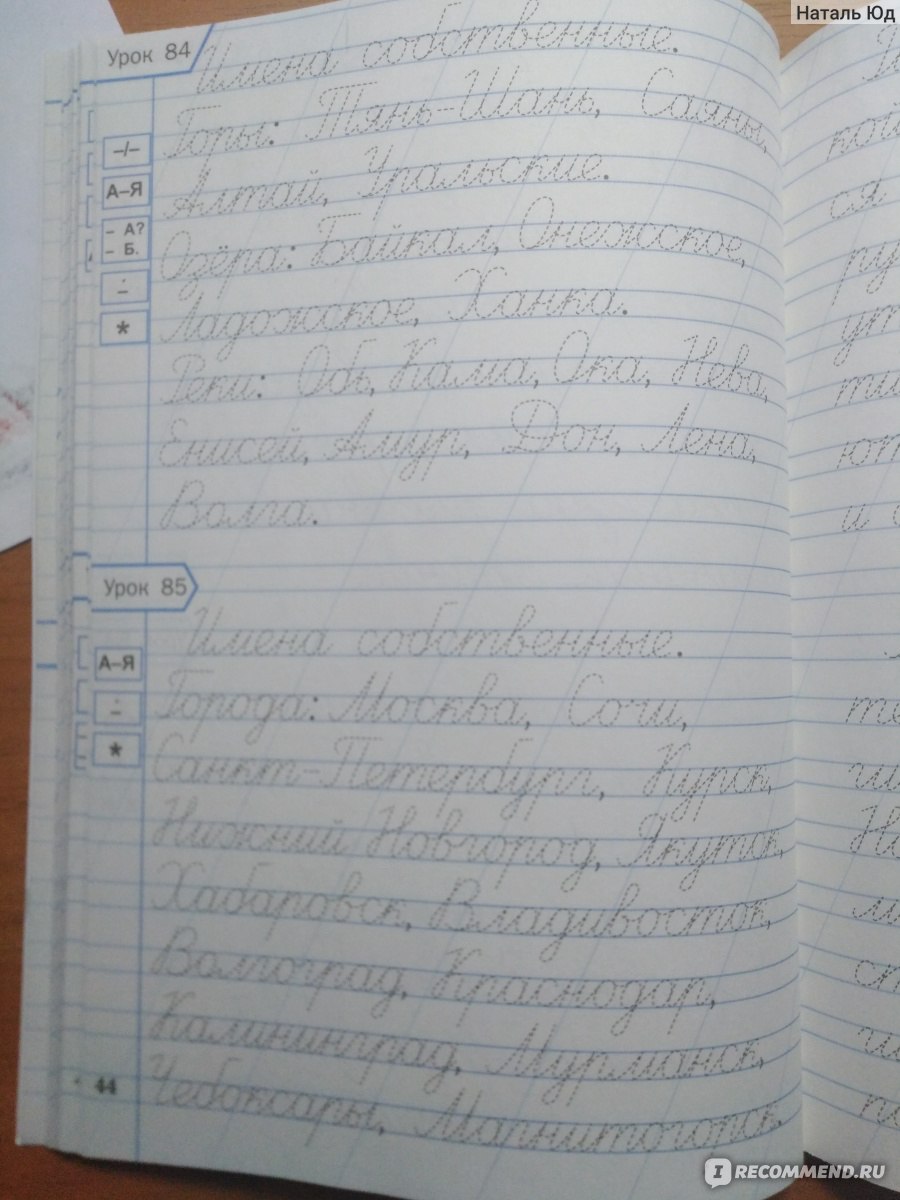 Наталь Юд
Урок 84
Имена собственные.
Горы: Тянь-Шань, Саяны,
Алтай, Уральские.
Озёра: Байкал, Онежское,
Ладожское, Ханка.
Реки: Обь, Кама, Ока, Нева,
Енисей, Амур, Дон, Лена,
Волга.
–/–
А–Я
– А?
– Б.
*
Урок 85
Имена собственные.
Города: Москва, Сочи,
Санкт-Петербург, Курск,
Нижний Новгород, Якутск,
Хабаровск, Владивосток,
Волгоград, Краснодар,
Калининград, Мурманск,
Чебоксары, Магнитогорск,
А–Я
*
44
кой
ся
ру
ут
ти
ют
и
те
IRECOMMEND.RU